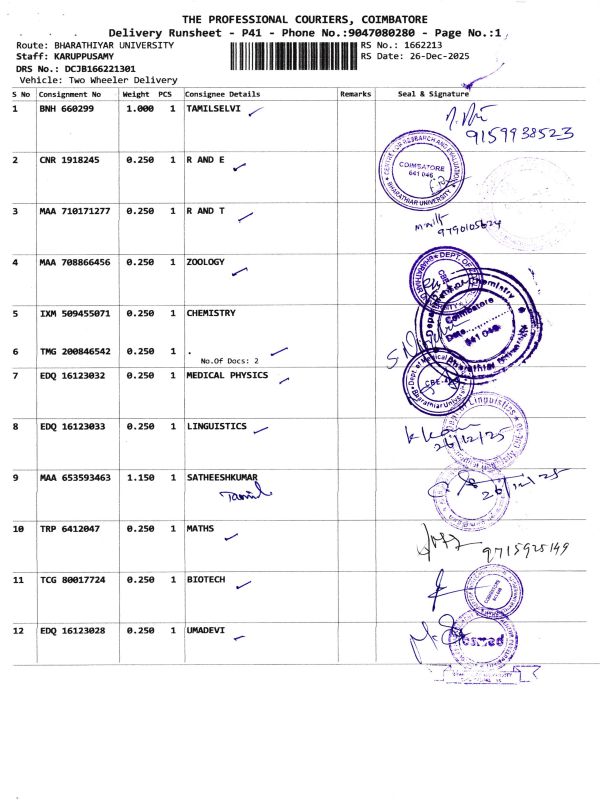 THE PROFESSIONAL COURIERS, COIMBATORE
Delivery Runsheet - P41 - Phone No.:9047080280 - Page No.:1
Route: BHARATHIYAR UNIVERSITY
RS No.: 1662213
Staff: KARUPPUSAMY
RS Date: 26-Dec-2025
DRS No.: DCJB166221301
Vehicle: Two Wheeler Delivery
S No Consignment No Weight PCS Consignee Details Remarks Seal & Signature
1 BNH 660299 1.000 1 TAMILSELVI
9159938523
2 CNR 1918245 0.250 1 R AND E
CENTRE FOR RESEARCH AND EVALUATION
COIMBATORE
641 046
BHARATHIAR UNIVERSITY
3 MAA 710171277 0.250 1 R AND T
9790105624
4 MAA 708866456 0.250 1 ZOOLOGY
5 IXM 509455071 0.250 1 CHEMISTRY
Chemistry
Coimbatore
Date
641 046
Bharathiar University
6 TMG 200846542 0.250 1 .
No.Of Docs: 2
7 EDQ 16123032 0.250 1 MEDICAL PHYSICS
Dept. of Medical
CBE
Bharathiar University
8 EDQ 16123033 0.250 1 LINGUISTICS
Linguistics
26/12/25
9 MAA 653593463 1.150 1 SATHEESHKUMAR
26/12/25
10 TRP 6412047 0.250 1 MATHS
9715925149
11 TCG 80017724 0.250 1 BIOTECH
12 EDQ 16123028 0.250 1 UMADEVI